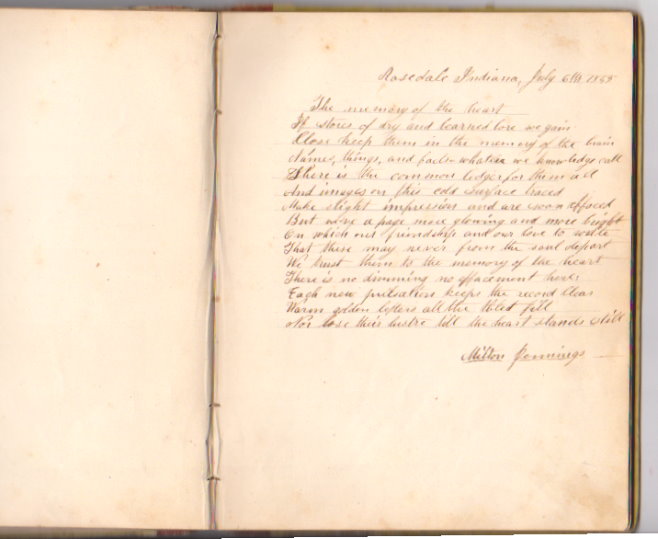 Rosedale Indiana, July 6th 1888
The memory of the heart
If stores of dry and learned lore we gain
Close keep them in the memory of the brain
Names, things, and facts whatever we knowledge call
There is the common ledger for them all
And images on this cold surface traced
Make slight impression and are soon effaced
But we've a page more glowing and more bright
On which our friendship and our love to write
That these may never from the soul depart
We trust them to the memory of the heart
There is no dimming no effacement here
Each new pulsation keeps the record clear
Warm golden letters all the tablet fill
Nor lose their lustre till the heart stands still
Milton Jennings